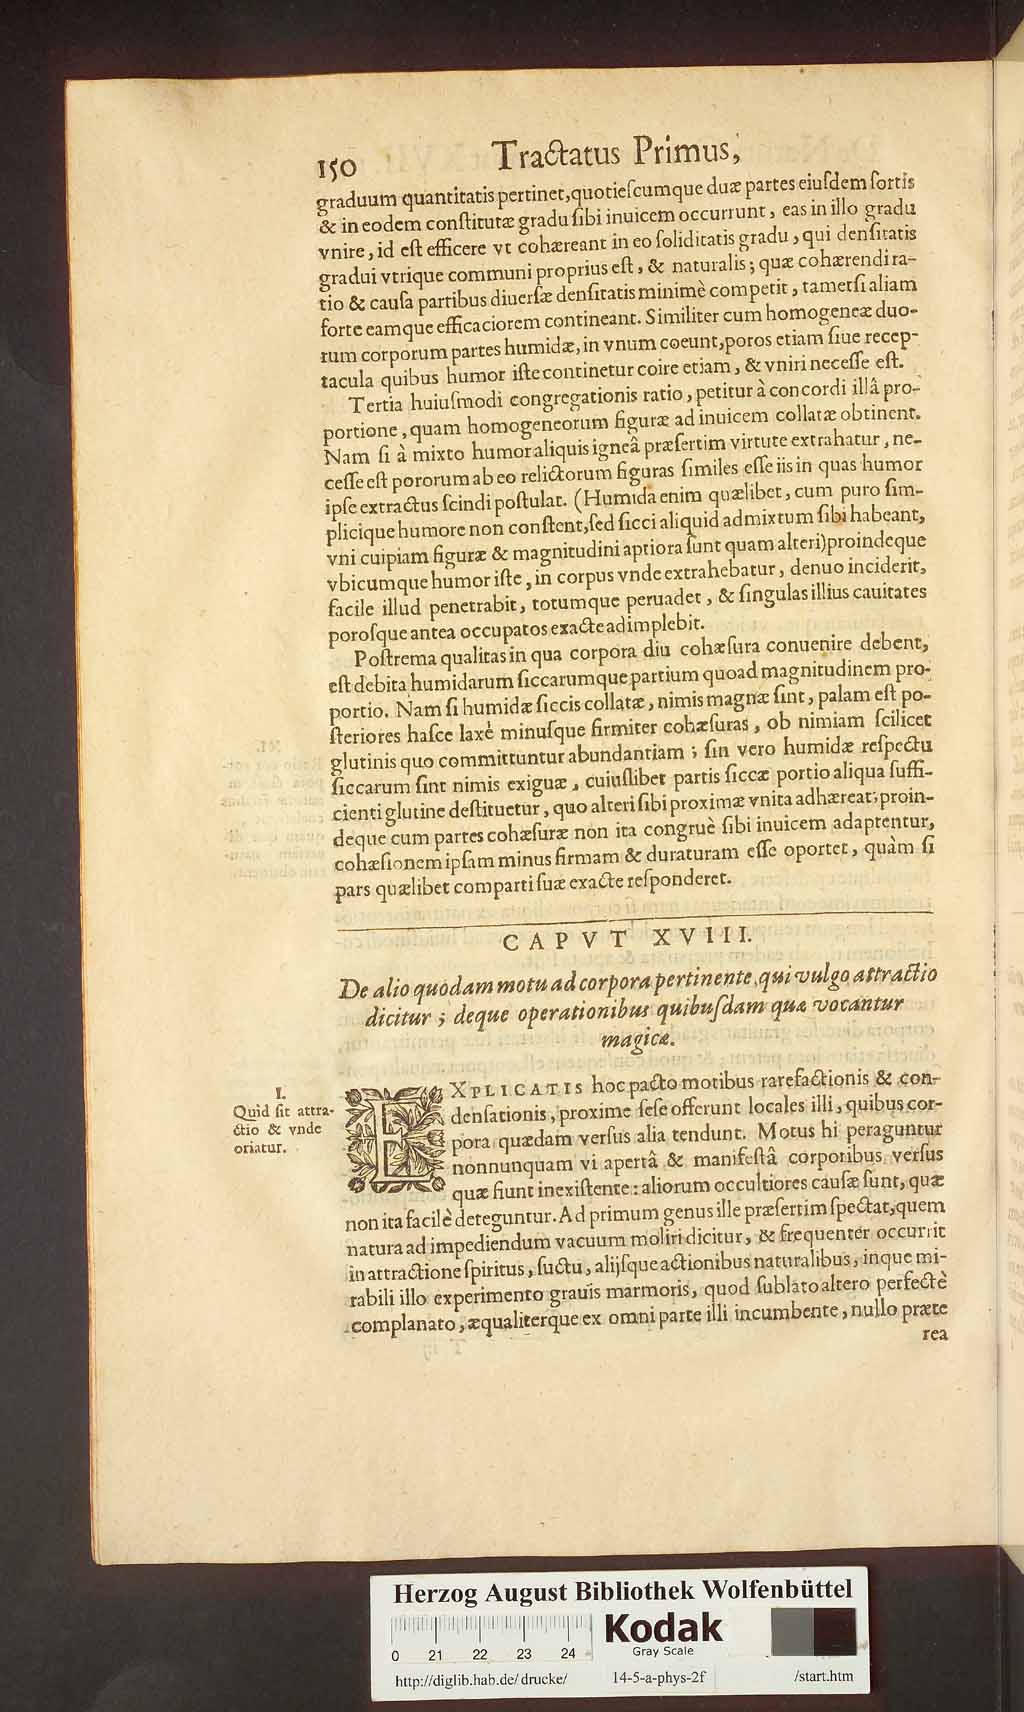 150 Tractatus Primus,
graduum quantitatis pertinet, quotieſcumque duæ partes eiuſdem ſortis
& in eodem conſtitutæ gradu ſibi inuicem occurrunt, eas in illo gradu
vnire, id eſt efficere vt cohæreant in eo ſoliditatis gradu, qui denſitatis
gradui vtrique communi proprius eſt, & naturalis; quæ cohærendi ra-
tio & cauſa partibus diuerſæ denſitatis minimè competit, tametſi aliam
forte eamque efficaciorem contineant. Similiter cum homogeneæ duo-
rum corporum partes humidæ, in vnum coeunt, poros etiam ſiue recep-
tacula quibus humor iſte continetur coire etiam, & vniri neceſſe eſt.
Tertia huiuſmodi congregationis ratio, petitur à concordi illâ pro-
portione, quam homogeneorum figuræ ad inuicem collatæ obtinent.
Nam ſi à mixto humor aliquis igneâ præſertim virtute extrahatur, ne-
ceſſe eſt pororum ab eo relictorum figuras ſimiles eſſe iis in quas humor
ipſe extractus ſcindi poſtulat. (Humida enim quælibet, cum puro ſim-
plicique humore non conſtent, ſed ſicci aliquid admixtum ſibi habeant,
vni cuipiam figuræ & magnitudini aptiora ſunt quam alteri) proindeque
vbicumque humor iſte, in corpus vnde extrahebatur, denuo inciderit,
facile illud penetrabit, totumque peruadet, & ſingulas illius cauitates
poroſque antea occupatos exacte adimplebit.
Poſtrema qualitas in qua corpora diu cohæſura conuenire debent,
eſt debita humidarum ſiccarumque partium quoad magnitudinem pro-
portio. Nam ſi humidæ ſiccis collatæ, nimis magnæ ſint, palam eſt po-
ſteriores haſce laxè minuſque firmiter cohæſuras, ob nimiam ſcilicet
glutinis quo committuntur abundantiam; ſin vero humidæ reſpectu
ſiccarum ſint nimis exiguæ, cuiuſlibet partis ſiccæ portio aliqua ſuffi-
cienti glutine deſtituetur, quo alteri ſibi proximæ vnita adhæreat; proin-
deque cum partes cohæſuræ non ita congruè ſibi inuicem adaptentur,
cohæſionem ipſam minus firmam & duraturam eſſe oportet, quàm ſi
pars quælibet comparti ſuæ exacte reſponderet.
CAPVT XVIII.
De alio quodam motu ad corpora pertinente, qui vulgo attractio
dicitur; deque operationibus quibuſdam quæ vocantur
magicæ.
I.
Quid ſit attra-
ctio & vnde
oriatur.
EXPLICATIS hoc pacto motibus rarefactionis & con-
denſationis, proxime ſeſe offerunt locales illi, quibus cor-
pora quædam verſus alia tendunt. Motus hi peraguntur
nonnunquam vi apertâ & manifeſtâ corporibus verſus
quæ fiunt inexiſtente: aliorum occultiores cauſæ ſunt, quæ
non ita facilè deteguntur. Ad primum genus ille præſertim ſpectat, quem
natura ad impediendum vacuum moliri dicitur, & frequenter occurrit
in attractione ſpiritus, ſuctu, alijſque actionibus naturalibus, inque mi-
rabili illo experimento grauis marmoris, quod ſublato altero perfectè
complanato, æqualiterque ex omni parte illi incumbente, nullo præte
rea
Herzog August Bibliothek Wolfenbüttel
0 21 22 23 24
Kodak
Gray Scale
http://diglib.hab.de/drucke/ 14-5-a-phys-2f /start.htm